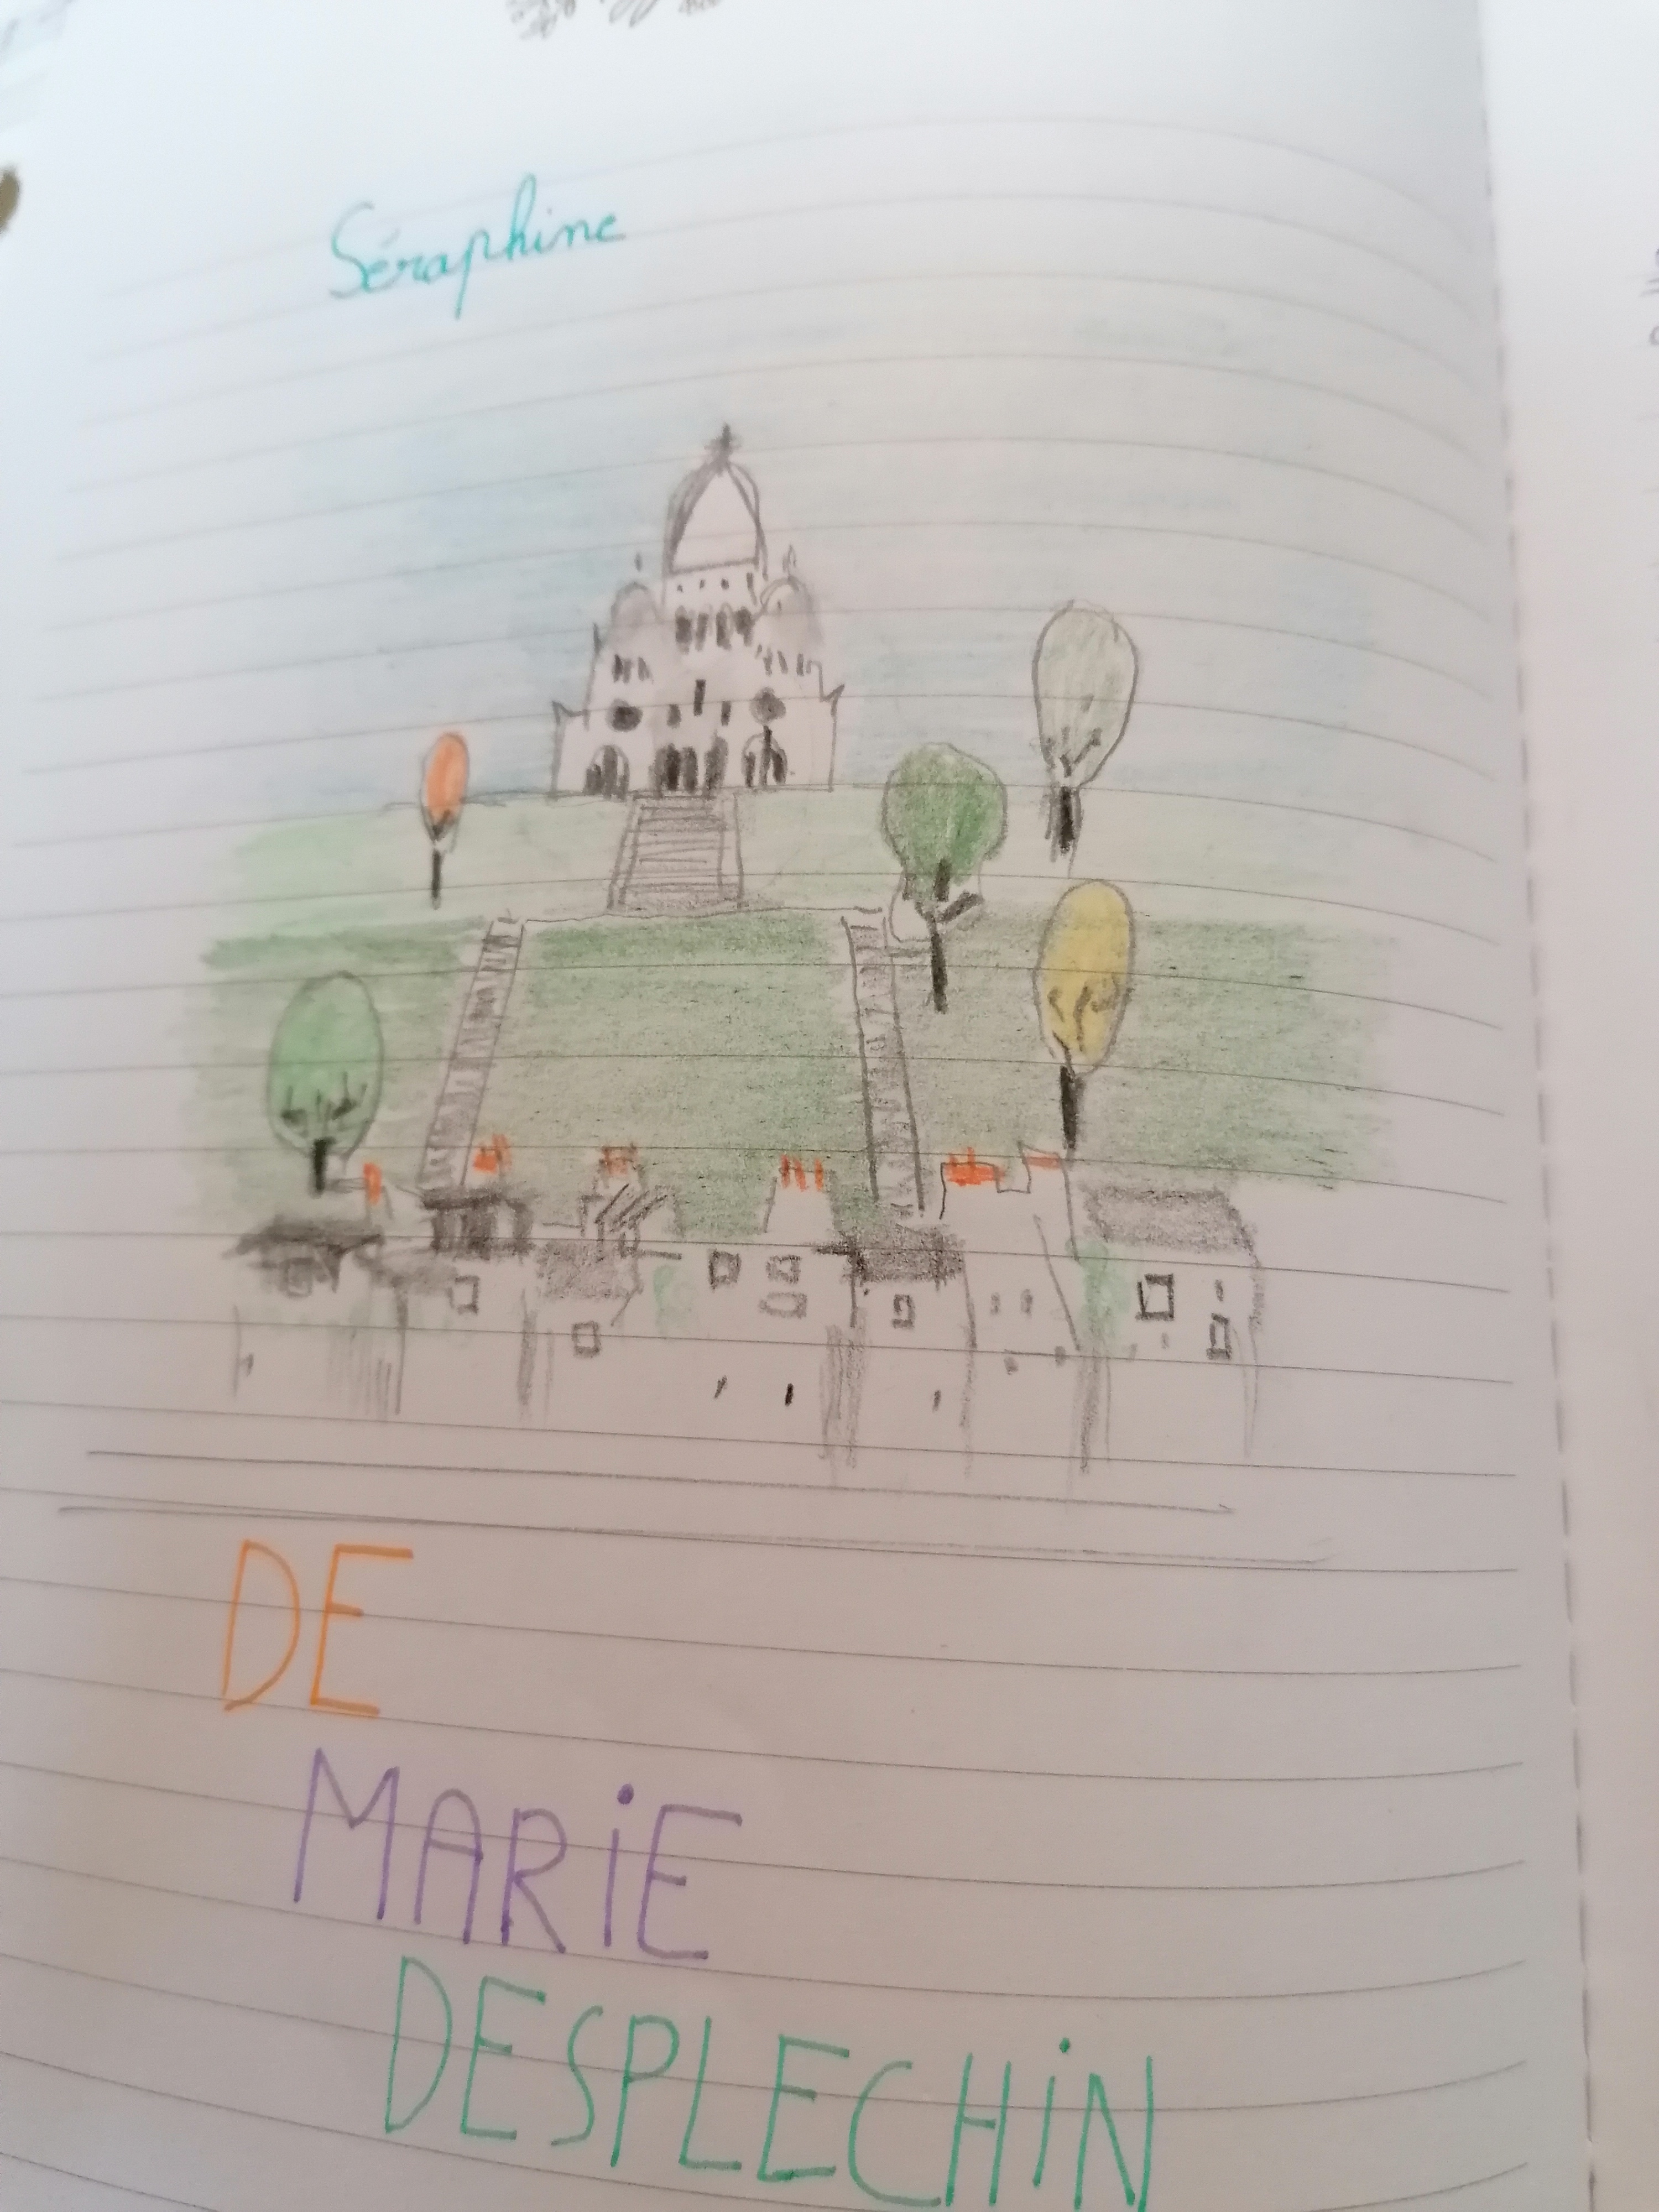 Séraphine
DE
MARiE
DESPLECHiN